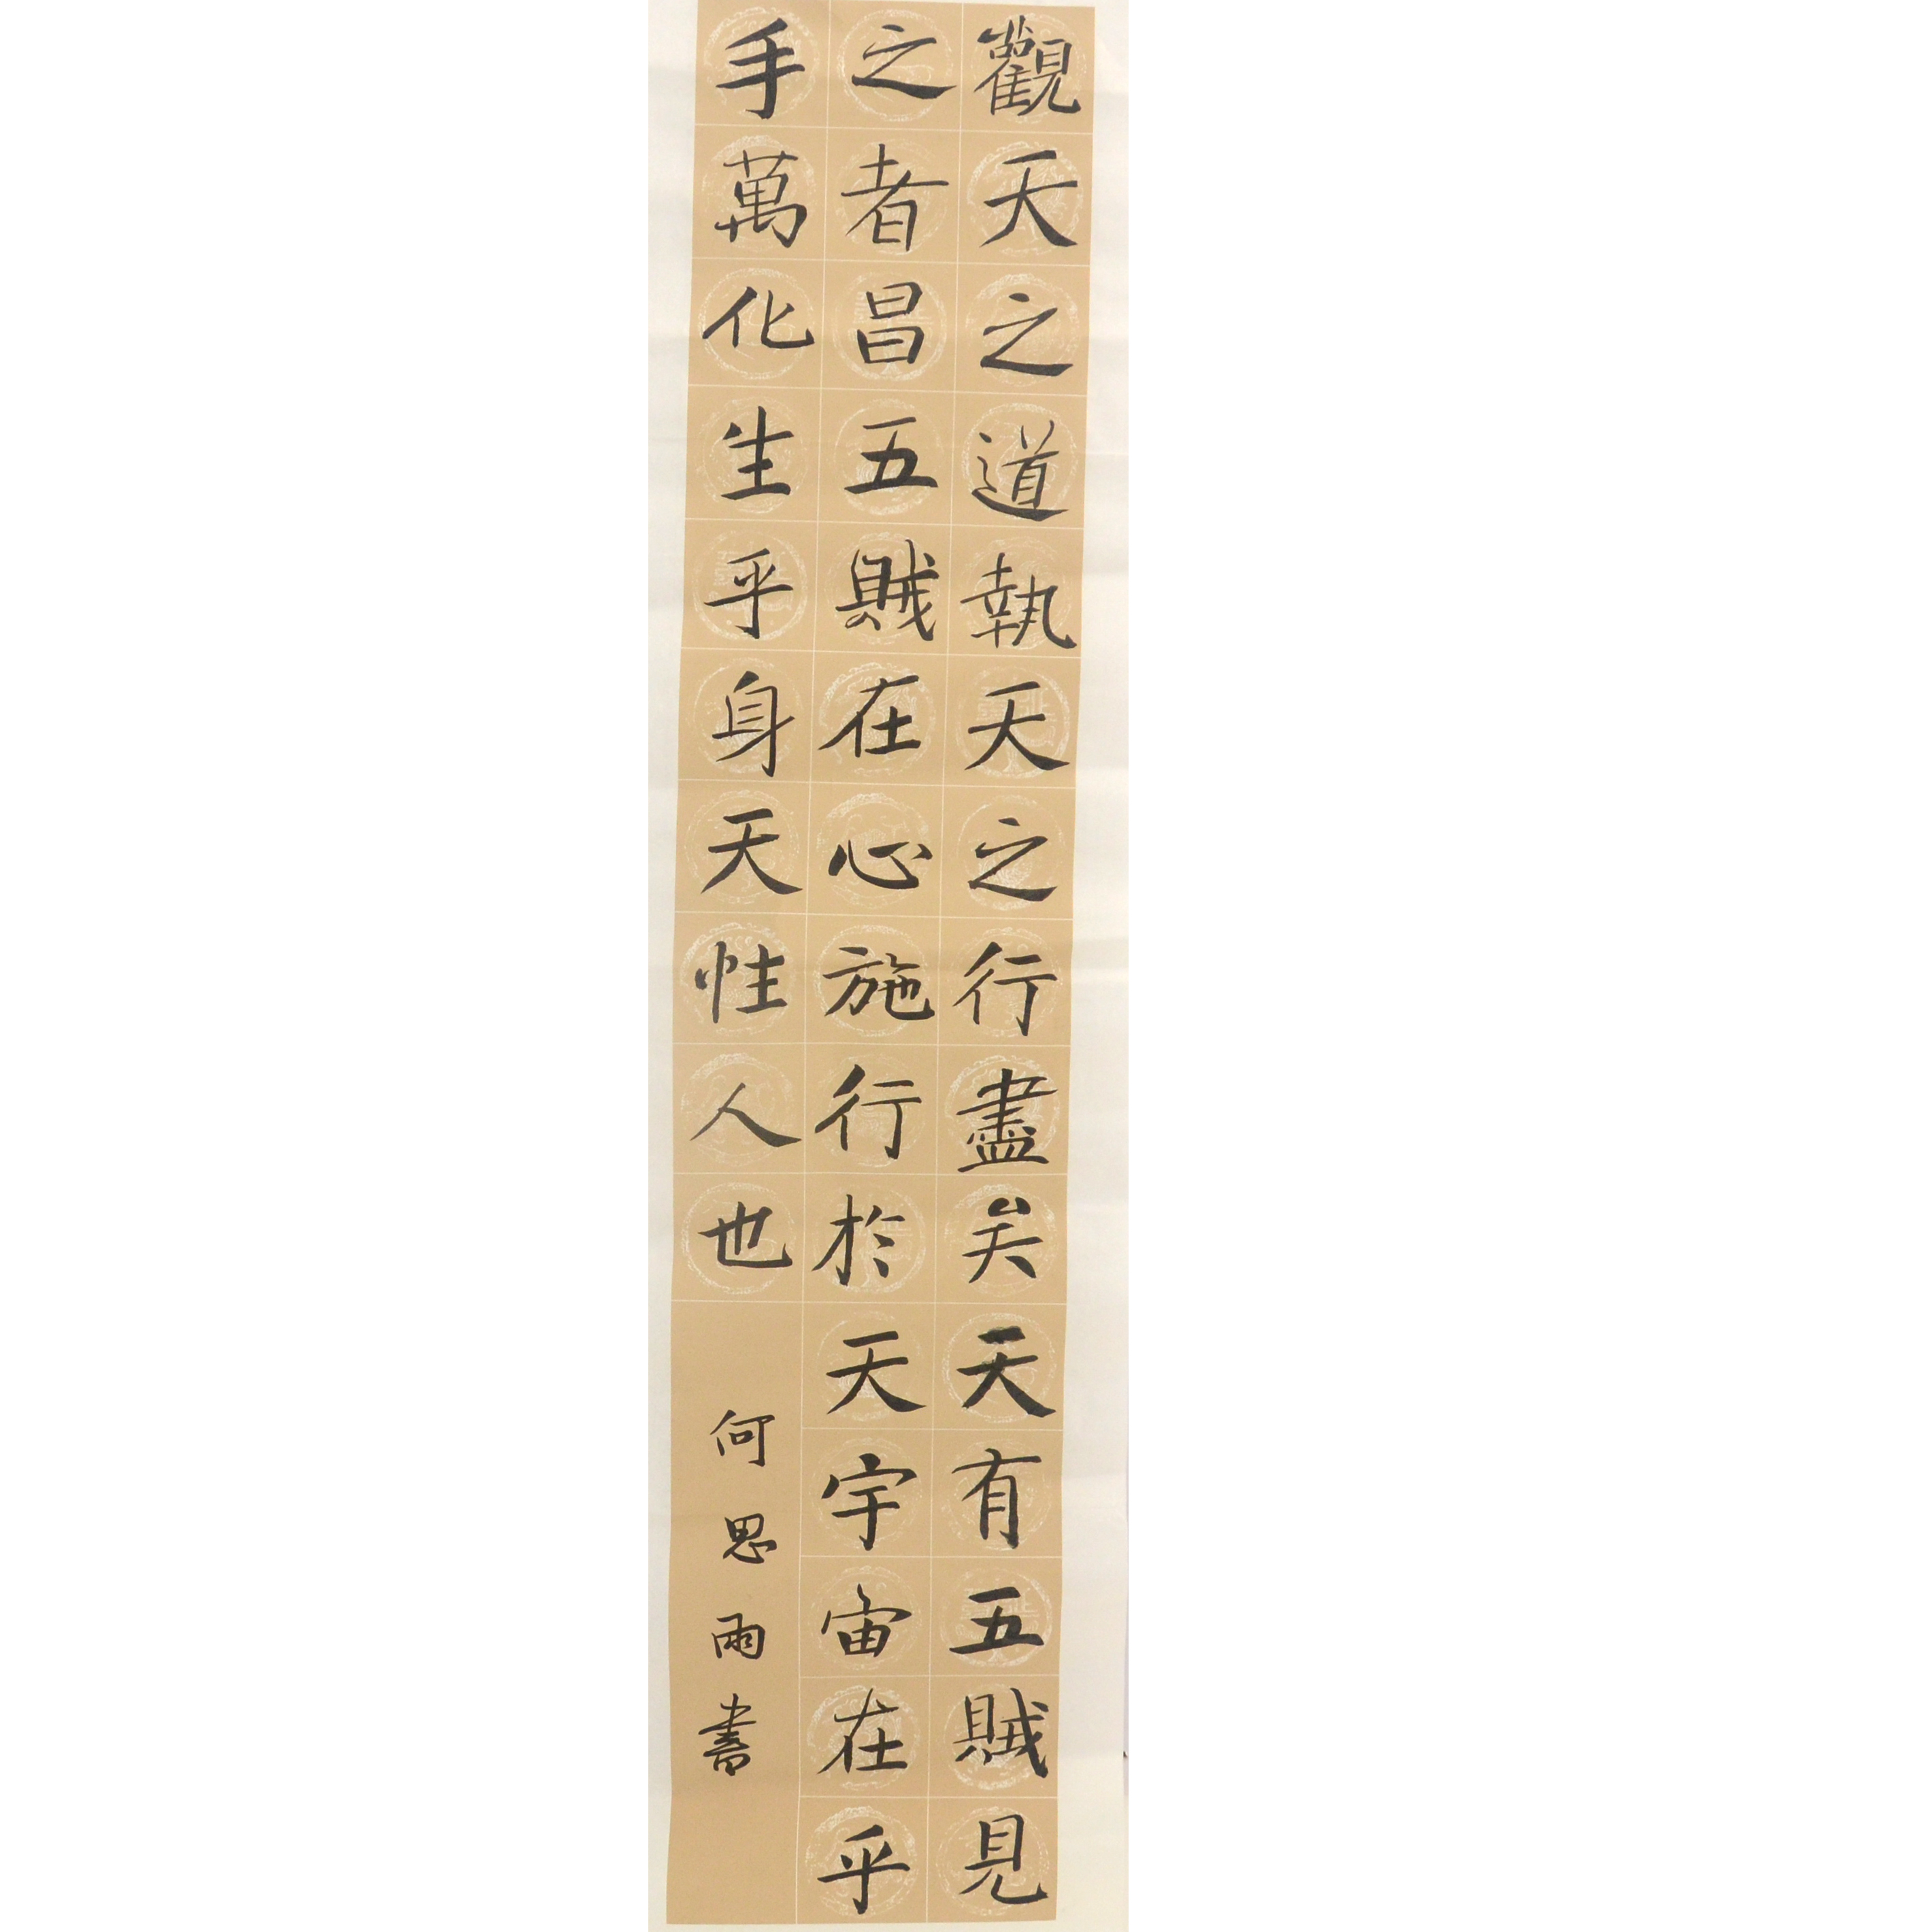 觀天之道執天之行盡矣天有五賊見
之者昌五賊在心施行於天宇宙在乎
手萬化生乎身天性人也
何思雨書